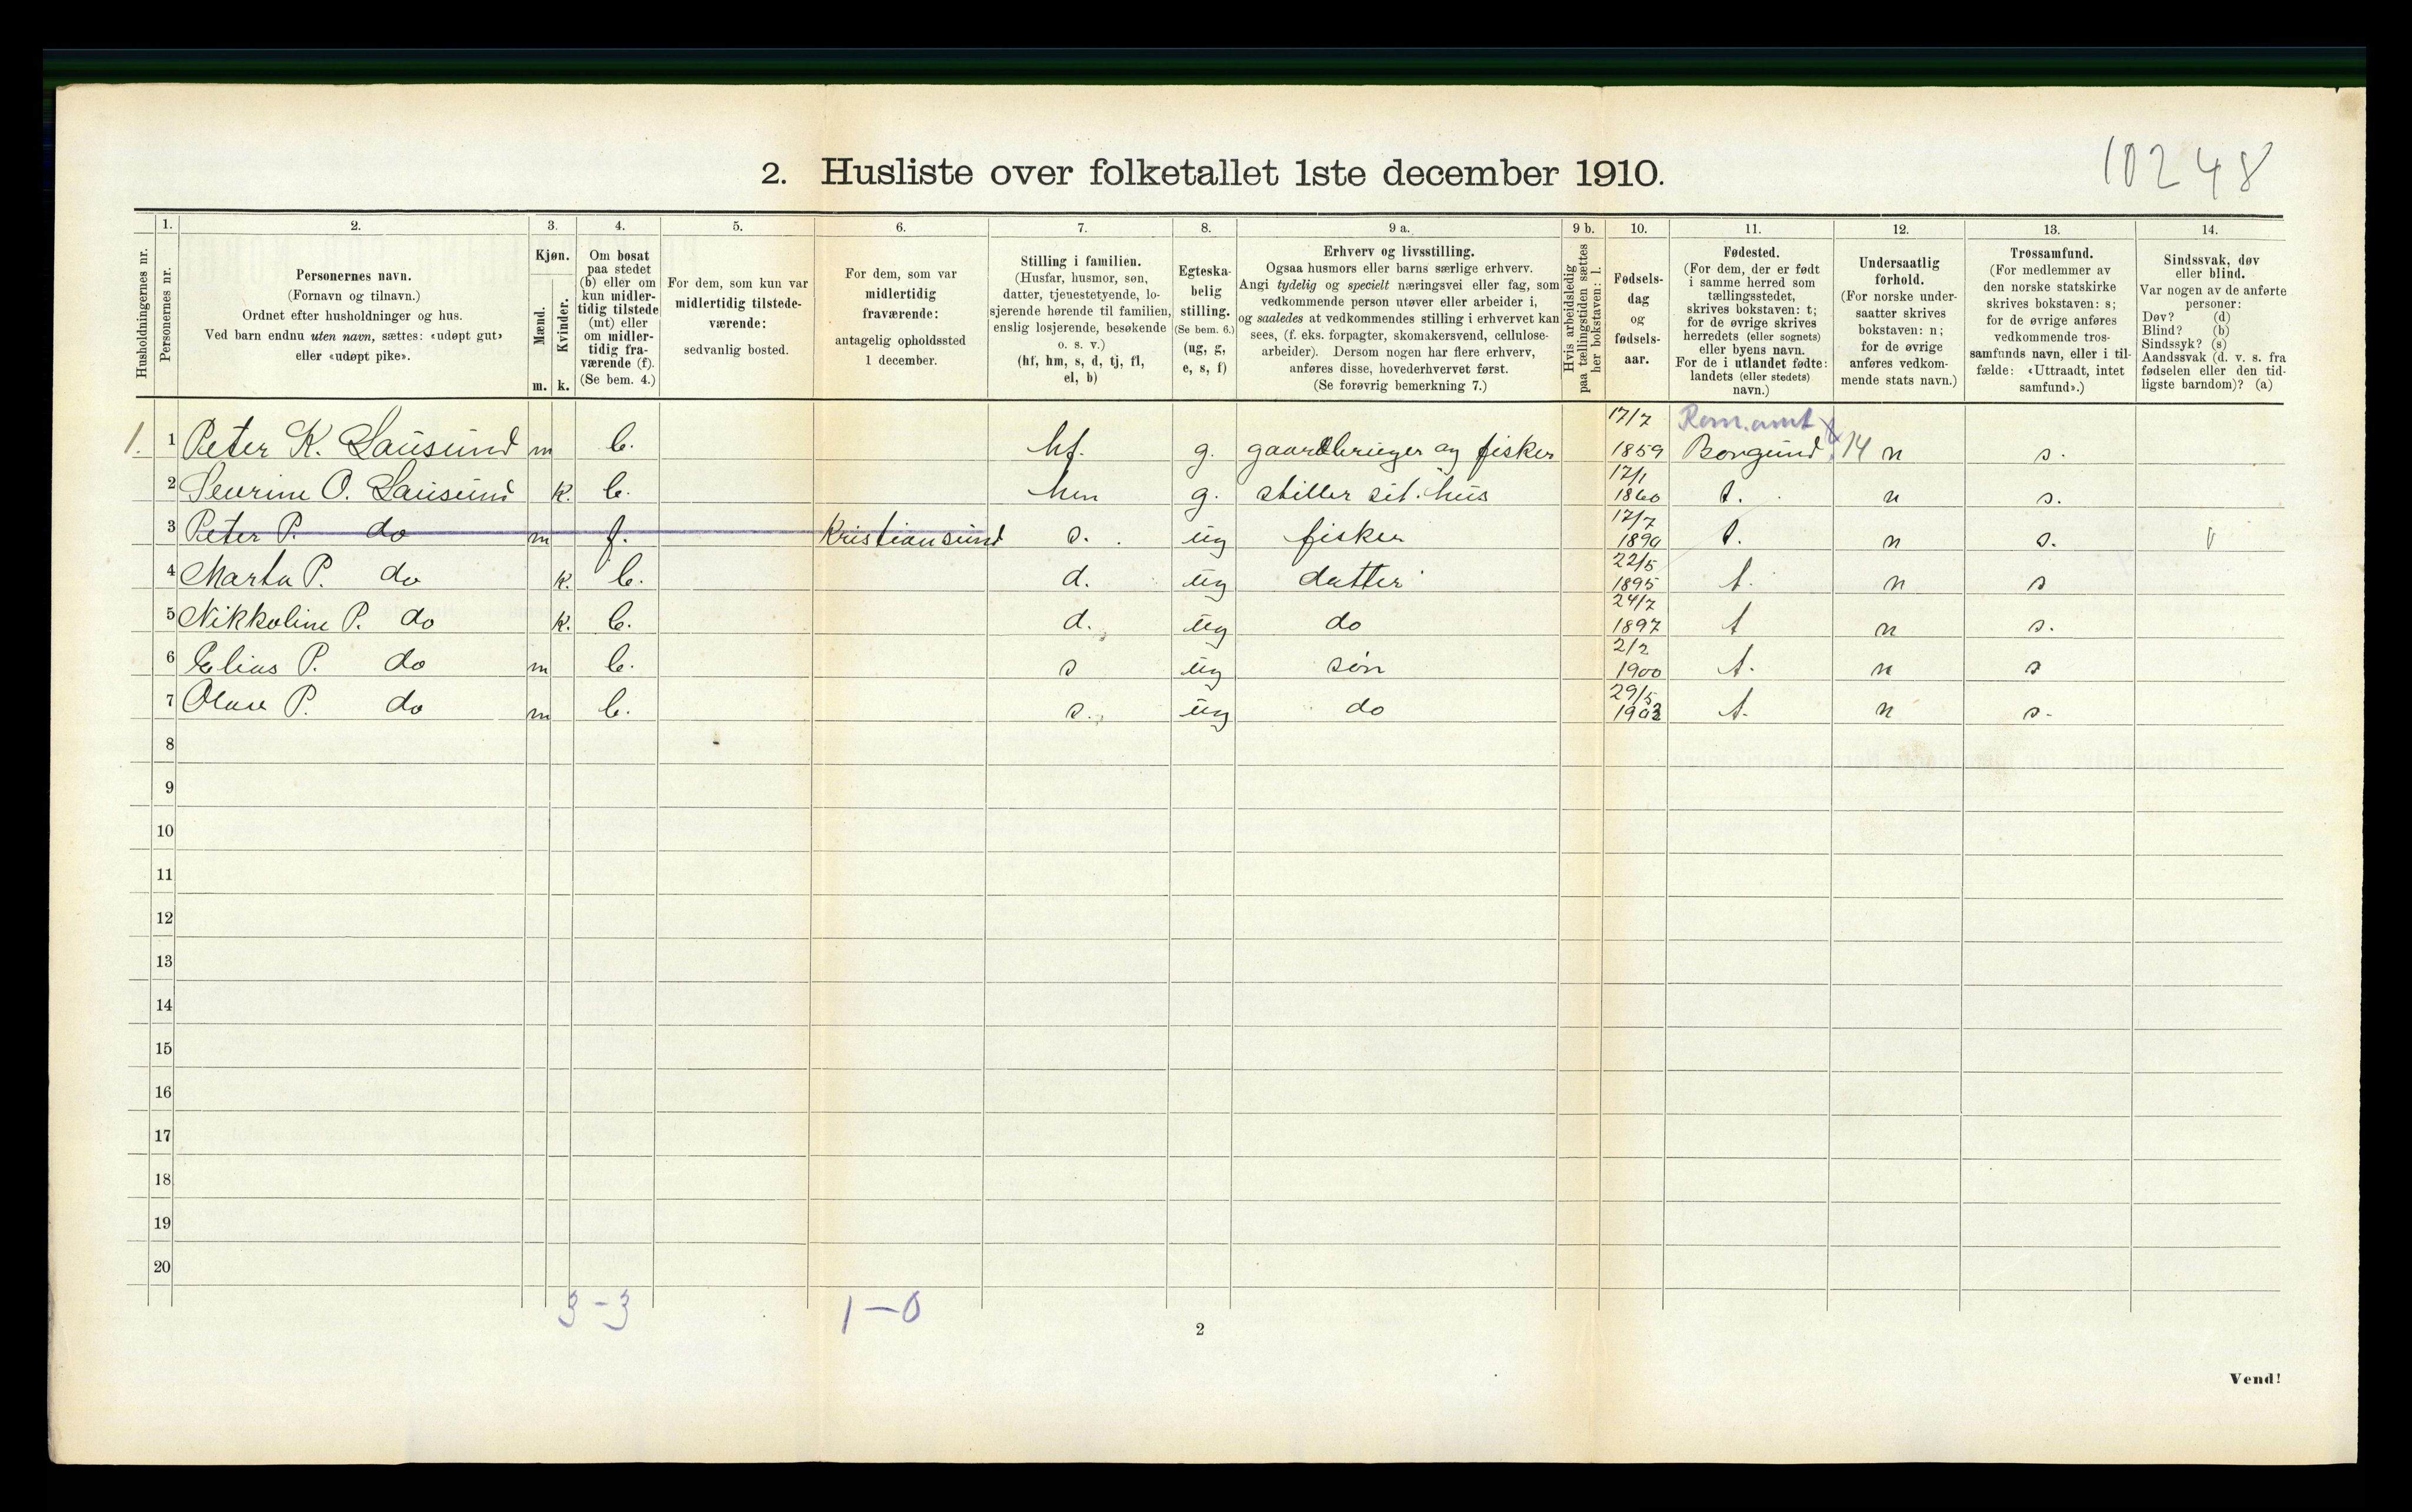 10248
2. Husliste over folketallet 1ste december 1910.
Husholdningernes nr.
1.
Personernes nr.
2.
Personernes navn.
(Fornavn og tilnavn.)
Ordnet efter husholdninger og hus.
Ved barn endnu uten navn, sættes: «udøpt gut»
eller «udøpt pike».
3.
Kjøn.
Mænd.
Kvinder.
m. k.
4.
Om bosat
paa stedet
(b) eller om
kun midler-
tidig tilstede
(mt) eller
om midler-
tidig fra-
værende (f).
(Se bem. 4.)
5.
For dem, som kun var
midlertidig tilstede-
værende:
sedvanlig bosted.
6.
For dem, som var
midlertidig
fraværende:
antagelig opholdssted
1 december.
7.
Stilling i familien.
(Husfar, husmor, søn,
datter, tjenestetyende, lo-
sjerende hørende til familien,
enslig losjerende, besøkende
o. s. v.)
(hf, hm, s, d, tj, fl,
el, b)
8.
Egteska-
belig
stilling.
(Se bem. 6.)
(ug, g,
e, s, f)
9 a.
Erhverv og livsstilling.
Ogsaa husmors eller barns særlige erhverv.
Angi tydelig og specielt næringsvei eller fag, som
vedkommende person utøver eller arbeider i,
og saaledes at vedkommendes stilling i erhvervet kan
sees, (f. eks. forpagter, skomakersvend, cellulose-
arbeider). Dersom nogen har flere erhverv,
anføres disse, hovederhvervet først.
(Se forøvrig bemerkning 7.)
9 b.
Hvis arbeidsledig
paa tællingstiden sættes
her bokstaven: l.
10.
Fødsels-
dag
og
fødsels-
aar.
11.
Fødested.
(For dem, der er født
i samme herred som
tællingsstedet,
skrives bokstaven: t;
for de øvrige skrives
herredets (eller sognets)
eller byens navn.
For de i utlandet fødte:
landets (eller stedets)
navn.)
12.
Undersaatlig
forhold.
(For norske under-
saatter skrives
bokstaven: n;
for de øvrige
anføres vedkom-
mende stats navn.)
13.
Trossamfund.
(For medlemmer av
den norske statskirke
skrives bokstaven: s;
for de øvrige anføres
vedkommende tros-
samfunds navn, eller i til-
fælde: «Uttraadt, intet
samfund».)
14.
Sindssvak, døv
eller blind.
Var nogen av de anførte
personer:
Døv? (d)
Blind? (b)
Sindssyk? (s)
Aandssvak (d. v. s. fra
fødselen eller den tid-
ligste barndom)? (a)
17/7 Rom.amt
1. 1 Peter K. Lausund m b. hf. g. gaardbruger og fisker 1859 Borgund 14 n s.
17/1
2 Sevrine O. Lausund k. b. hm g. stiller sit. hus 1860 t. n s.
17/7
3 Peter P. do m f. Kristiansund s. ug fisker 1890 t. n s.
22/5
4 Marta P. do k. b. d. ug datter 1895 t. n s
24/7
5 Nikkoline P. do k. b. d. ug do 1897 t n s.
2/2
6 Elias P. do m b. s ug søn 1900 t. n s
29/5
7 Olave P. do m b. s. ug do 1903 t. n s.
8
9
10
11
12
13
14
15
16
17
18
19
20
3-3 1-0
2
Vend!